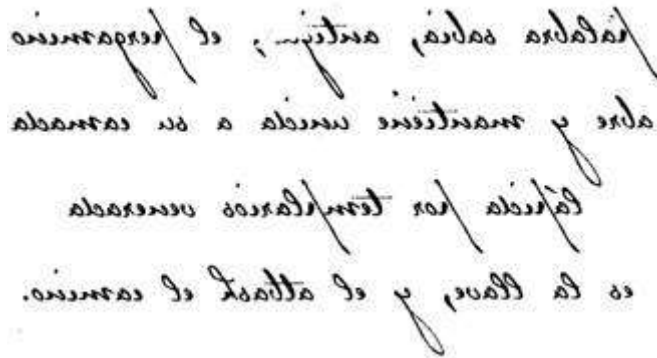 palabra sabia, antigua, el pergamino
abre y mantiene unida a su camada
lápida por templarios venerada
es la llave, y el atbash el camino.